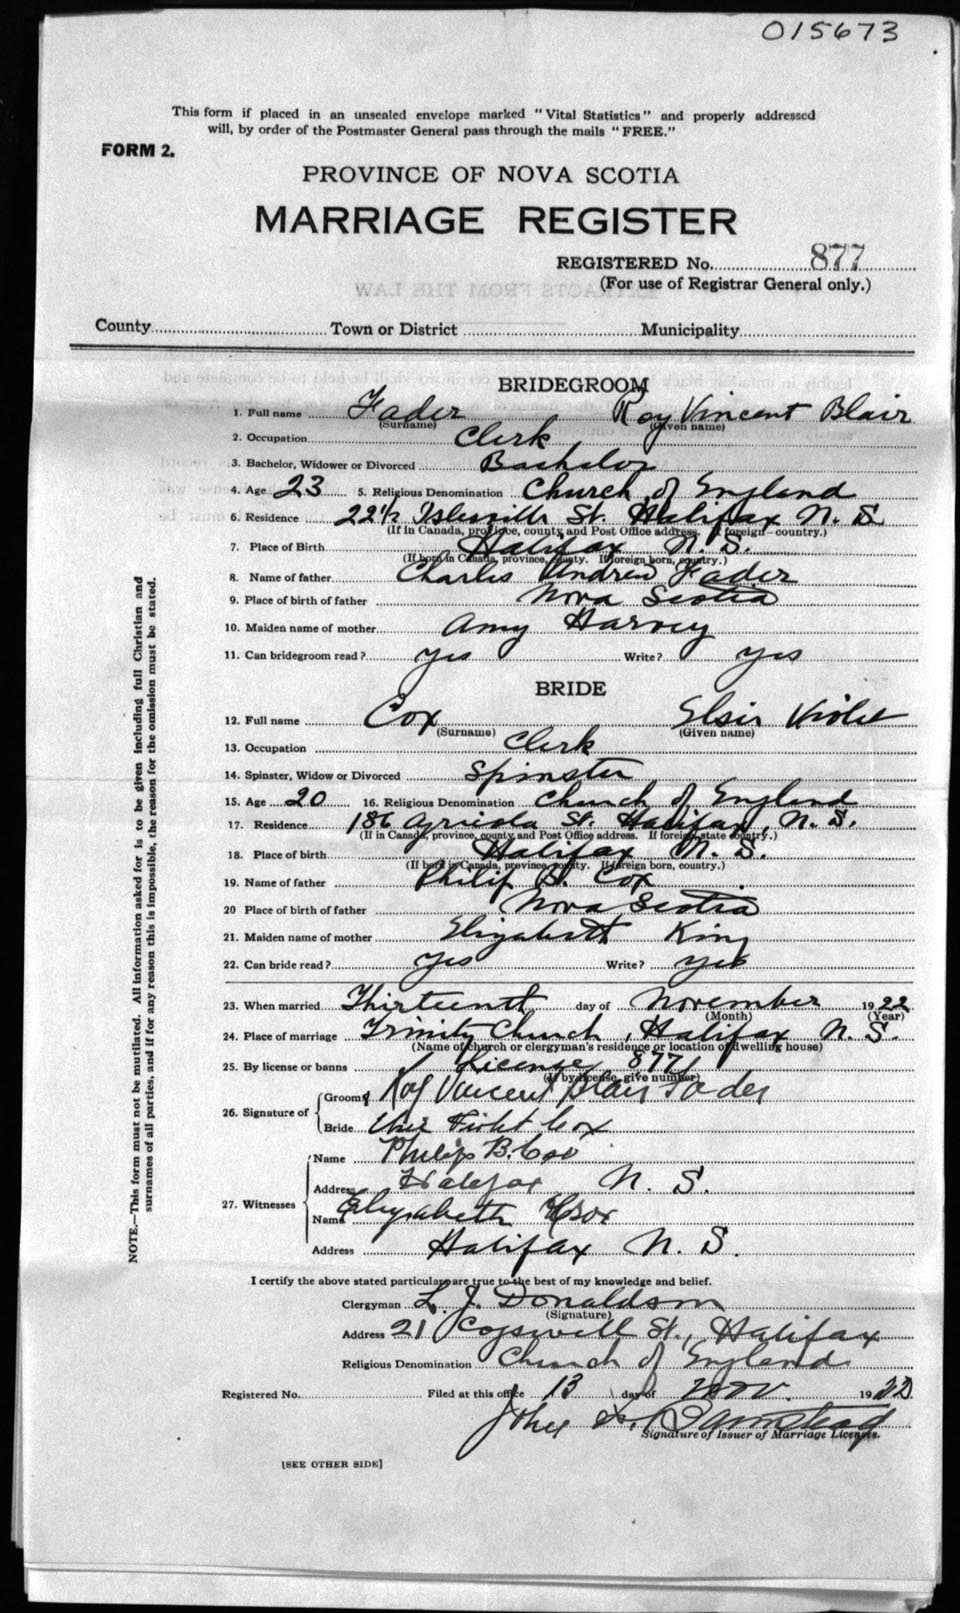 015673
This form if placed in an unsealed envelope marked "Vital Statistics" and properly addressed
will, by order of the Postmaster General pass through the mails "FREE."
FORM 2.
PROVINCE OF NOVA SCOTIA
MARRIAGE REGISTER
REGISTERED No. 877
(For use of Registrar General only.)
County Town or District Municipality
BRIDEGROOM
1. Full name Fader Roy Vincent Blair
(Surname) (Given name)
2. Occupation Clerk
3. Bachelor, Widower or Divorced Bachelor
4. Age 23 5. Religious Denomination Church of England
6. Residence 22½ Isleville St. Halifax N. S.
(If in Canada, province, county and Post Office address. If foreign—country.)
7. Place of Birth Halifax N. S.
(If born in Canada, province, county. If foreign born, country.)
8. Name of father Charles Andrew Fader
9. Place of birth of father Nova Scotia
10. Maiden name of mother Amy Harvey
11. Can bridegroom read? yes Write? yes
BRIDE
12. Full name Cox Elsie Violet
(Surname) (Given name)
13. Occupation Clerk
14. Spinster, Widow or Divorced Spinster
15. Age 20 16. Religious Denomination Church of England
17. Residence 186 Agricola St. Halifax, N. S.
(If in Canada, province, county and Post Office address. If foreign state country.)
18. Place of birth Halifax N. S.
(If born in Canada, province, county. If foreign born, country.)
19. Name of father Philip B. Cox
20 Place of birth of father Nova Scotia
21. Maiden name of mother Elizabeth King
22. Can bride read? yes Write? yes
23. When married Thirteenth day of November 1922
(Month) (Year)
24. Place of marriage Trinity Church, Halifax N. S.
(Name of church or clergyman's residence or location of dwelling house)
25. By license or banns License 877
(If by license, give number)
26. Signature of Groom Roy Vincent Blair Fader
Bride Elsie Violet Cox
27. Witnesses Name Philip B. Cox
Address Halifax N. S.
Name Elizabeth Cox
Address Halifax N. S.
I certify the above stated particulars are true to the best of my knowledge and belief.
Clergyman L. J. Donaldson
(Signature)
Address 21 Cogswell St., Halifax
Religious Denomination Church of England
Registered No. Filed at this office 13 day of Nov. 1922
John Barnstead
Signature of Issuer of Marriage Licenses.
[SEE OTHER SIDE]
NOTE.—This form must not be mutilated. All information asked for is to be given including full Christian and
surnames of all parties, and if for any reason this is impossible, the reason for the omission must be stated.